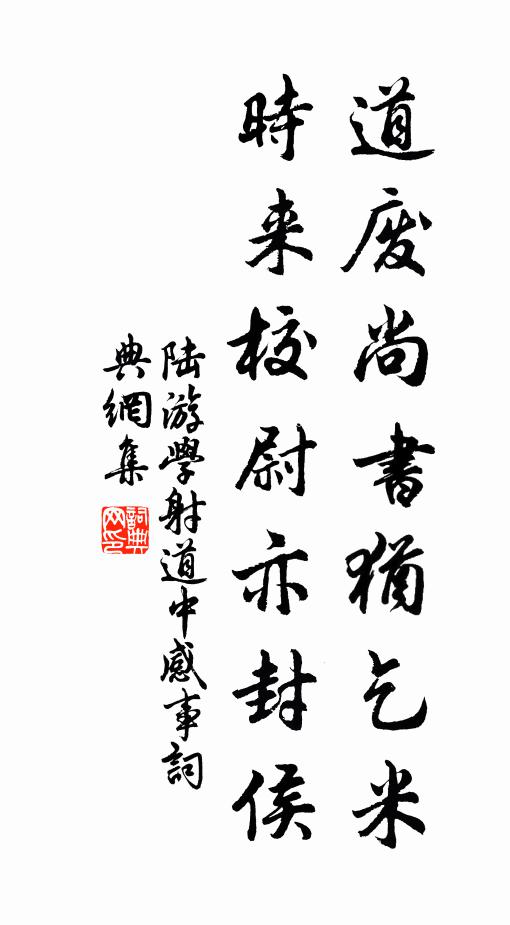 道废尚書猶乞米
時来校尉亦封侯
陆游學射道中感事詞
典網集
詞典网印